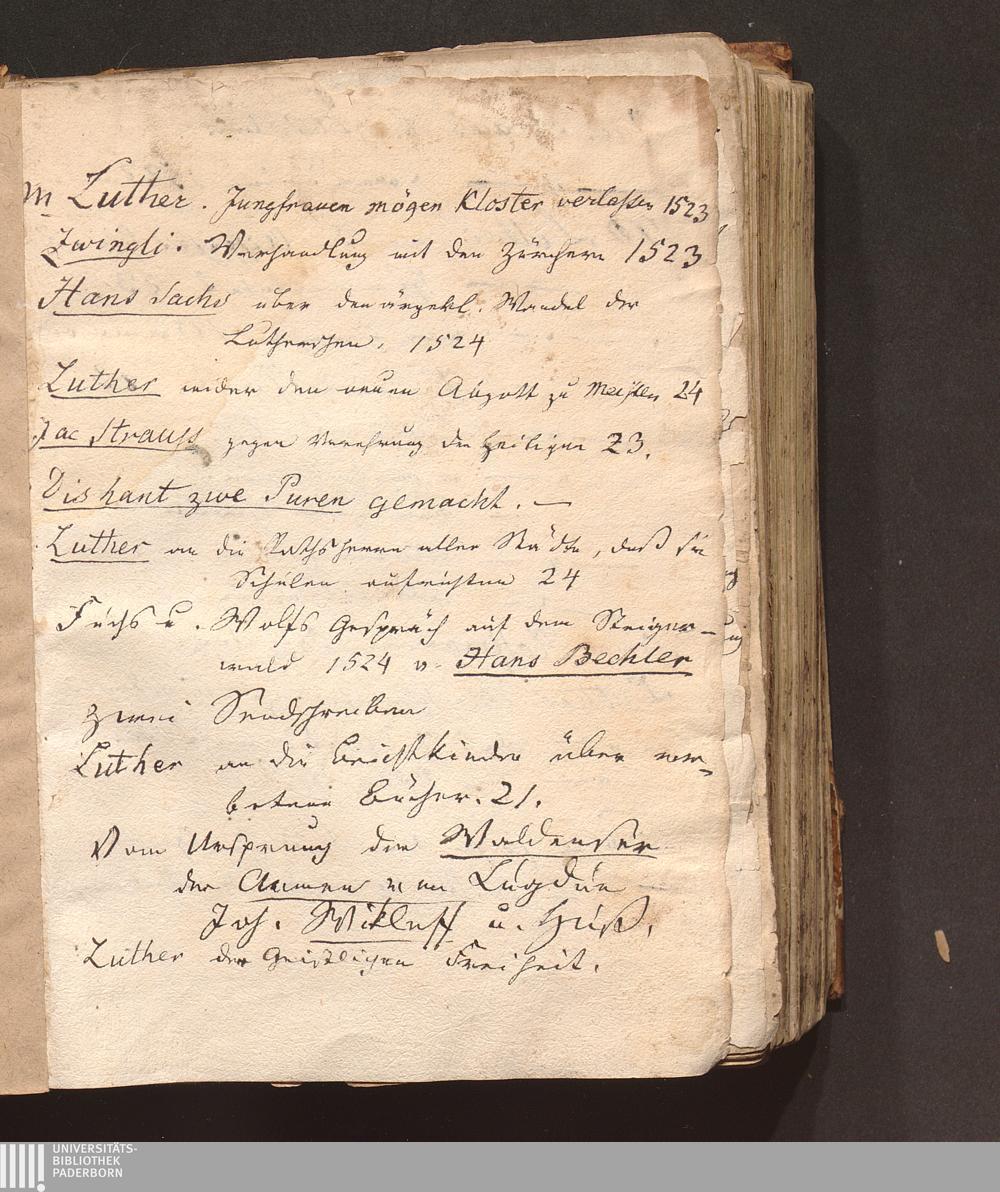 M Luther. Jungfrauen mögen Kloster verlassen 1523
Zwingli. Verhandlung mit den Zürchern 1523
Hans Sachs über den ärgerl. Wandel der
Lutherschen. 1524
Luther wider den neuen Abgott zu Meissen 24
Jac Strauss gegen Verehrung der Heiligen 23.
Dis hant zwe Puren gemacht. —
Luther an die Rathsherrn aller Städte, daß sie
Schulen aufrichten 24
Fuchs u. Wolfs Gespräch auf dem Steiger-
wald 1524 v. Hans Bechler
zwei Sendschreiben
Luther an die Beichtkinder über ver-
botene Bücher. 21.
Vom Ursprung der Waldenser
der Armen von Lugdun
Joh. Wikleff u. Huß.
Luther der Geistlichen Freiheit.
UNIVERSITÄTS-
BIBLIOTHEK
PADERBORN